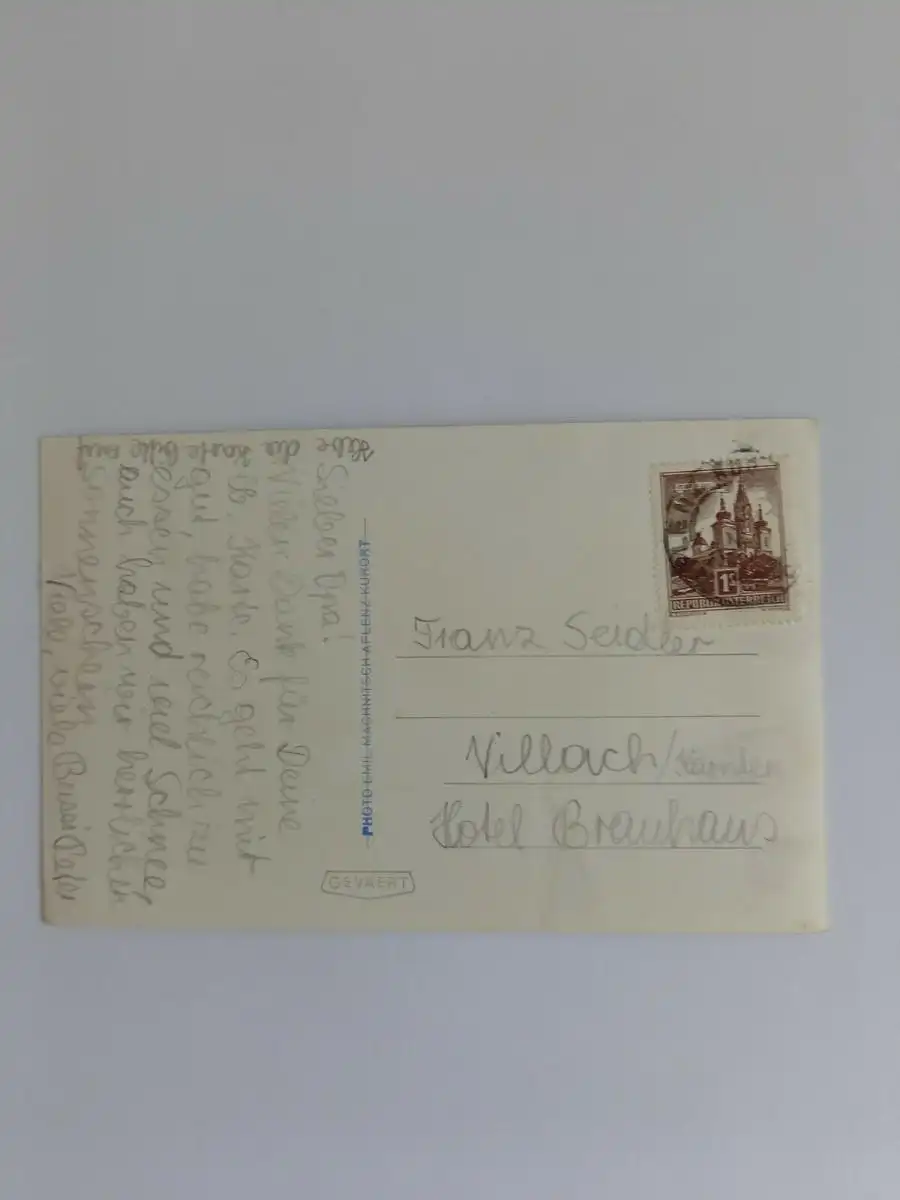 Hebe die Karte bitte auf
Lieber Opa!
Vielen Dank für Deine
lb. Karte. Es geht mir
gut, habe reichlich zu
essen und viel Schnee,
auch haben wir herrlichen
Sonnenschein
Viele, viele Bussi
PHOTO EMIL MACHNITSCH AFLENZ-KURORT
GEVAERT
1S
REPUBLIK ÖSTERREICH
Franz Seidler
Villach/Kärnten
Hotel Brauhaus